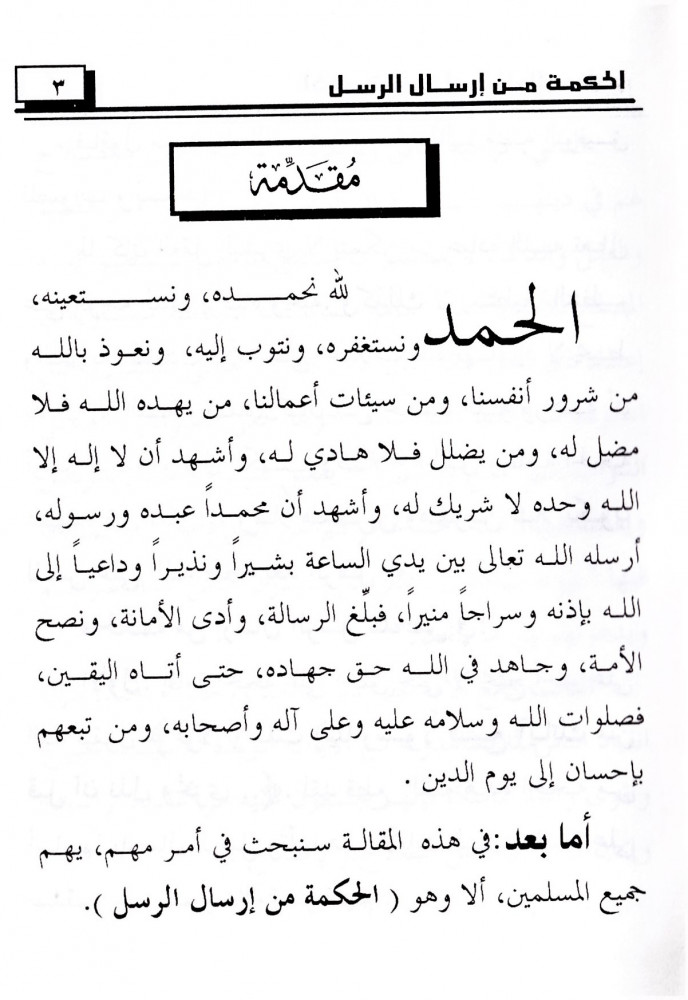 الحكمة من إرسال الرسل
٣
مُقَدِّمَة
الحمد لله نحمده، ونستعينه،
ونستغفره، ونتوب إليه، ونعوذ بالله
من شرور أنفسنا، ومن سيئات أعمالنا، من يهده الله فلا
مضل له، ومن يضلل فلا هادي له، وأشهد أن لا إله إلا
الله وحده لا شريك له، وأشهد أن محمداً عبده ورسوله،
أرسله الله تعالى بين يدي الساعة بشيراً ونذيراً وداعياً إلى
الله بإذنه وسراجاً منيراً، فبلِّغ الرسالة، وأدى الأمانة، ونصح
الأمة، وجاهد في الله حق جهاده، حتى أتاه اليقين،
فصلوات الله وسلامه عليه وعلى آله وأصحابه، ومن تبعهم
بإحسان إلى يوم الدين .
أما بعد:في هذه المقالة سنبحث في أمر مهم، يهم
جميع المسلمين، ألا وهو ( الحكمة من إرسال الرسل ).